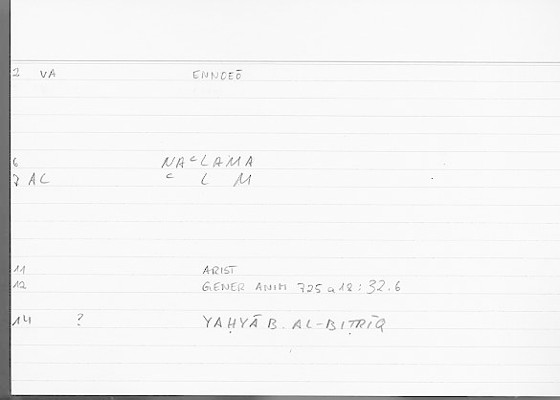 2 VA ENNOEŌ
6 NAʿLAMA
7 AL ʿ L M
11 ARIST
12 GENER ANIM 725a18:32.6
14 ? YAḤYĀ B. AL-BIṬRĪQ